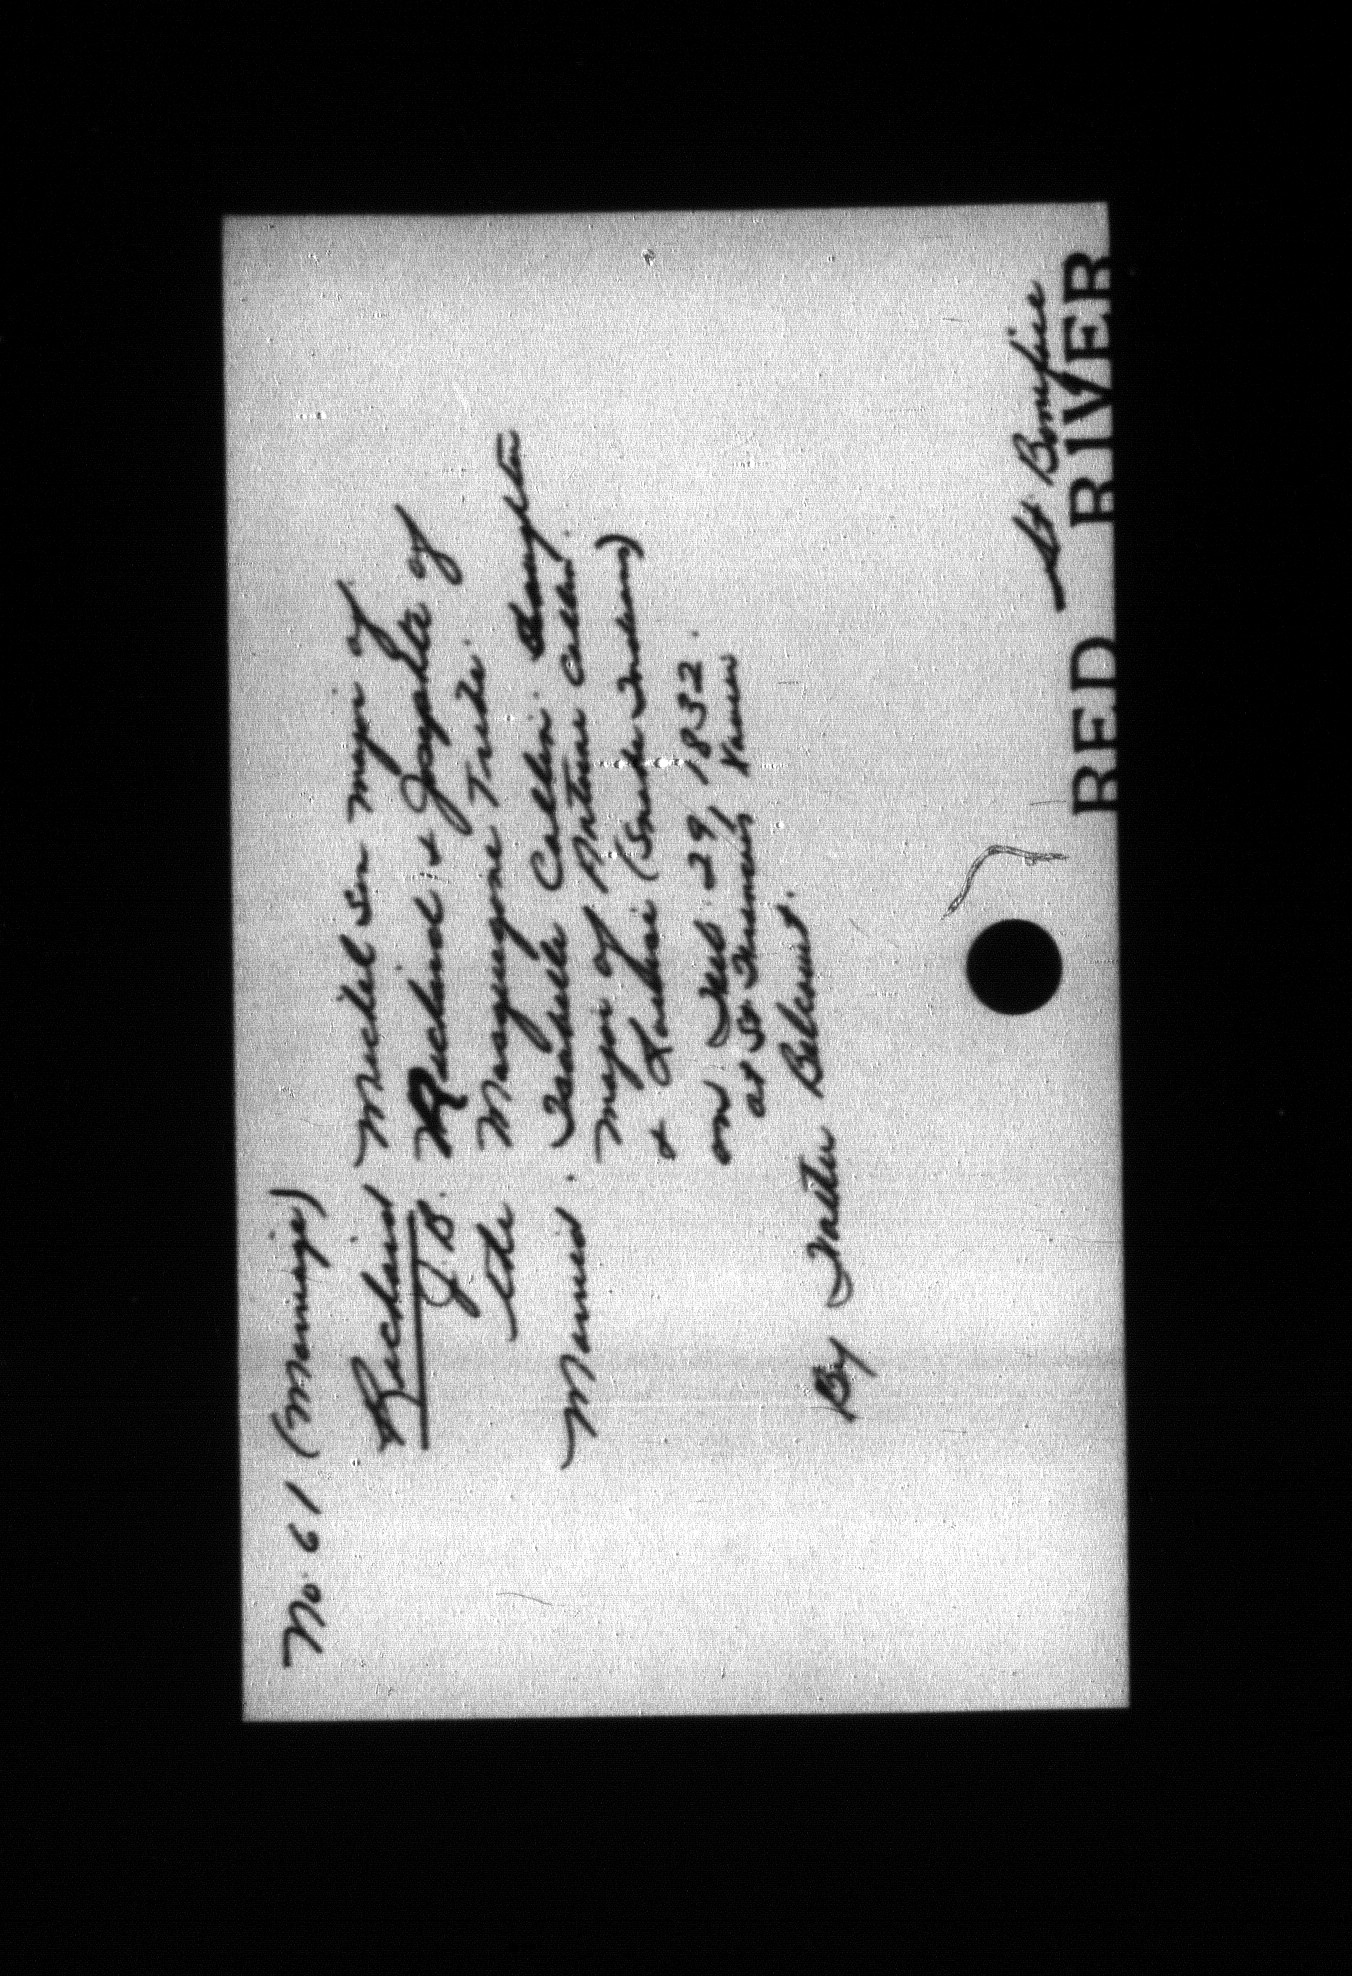 No. 61 (Marriage)
Richard Michel son major of
J. B. Richard & Josephte of
the Masquegone Tribe.
Married. Isabelle Collin. daughter
major of Antoine Collin.
& Louise (Snake Indians)
on Feb. 29, 1832.
at St Francois Xavier
By Father Belcourt.
St Boniface
RED RIVER